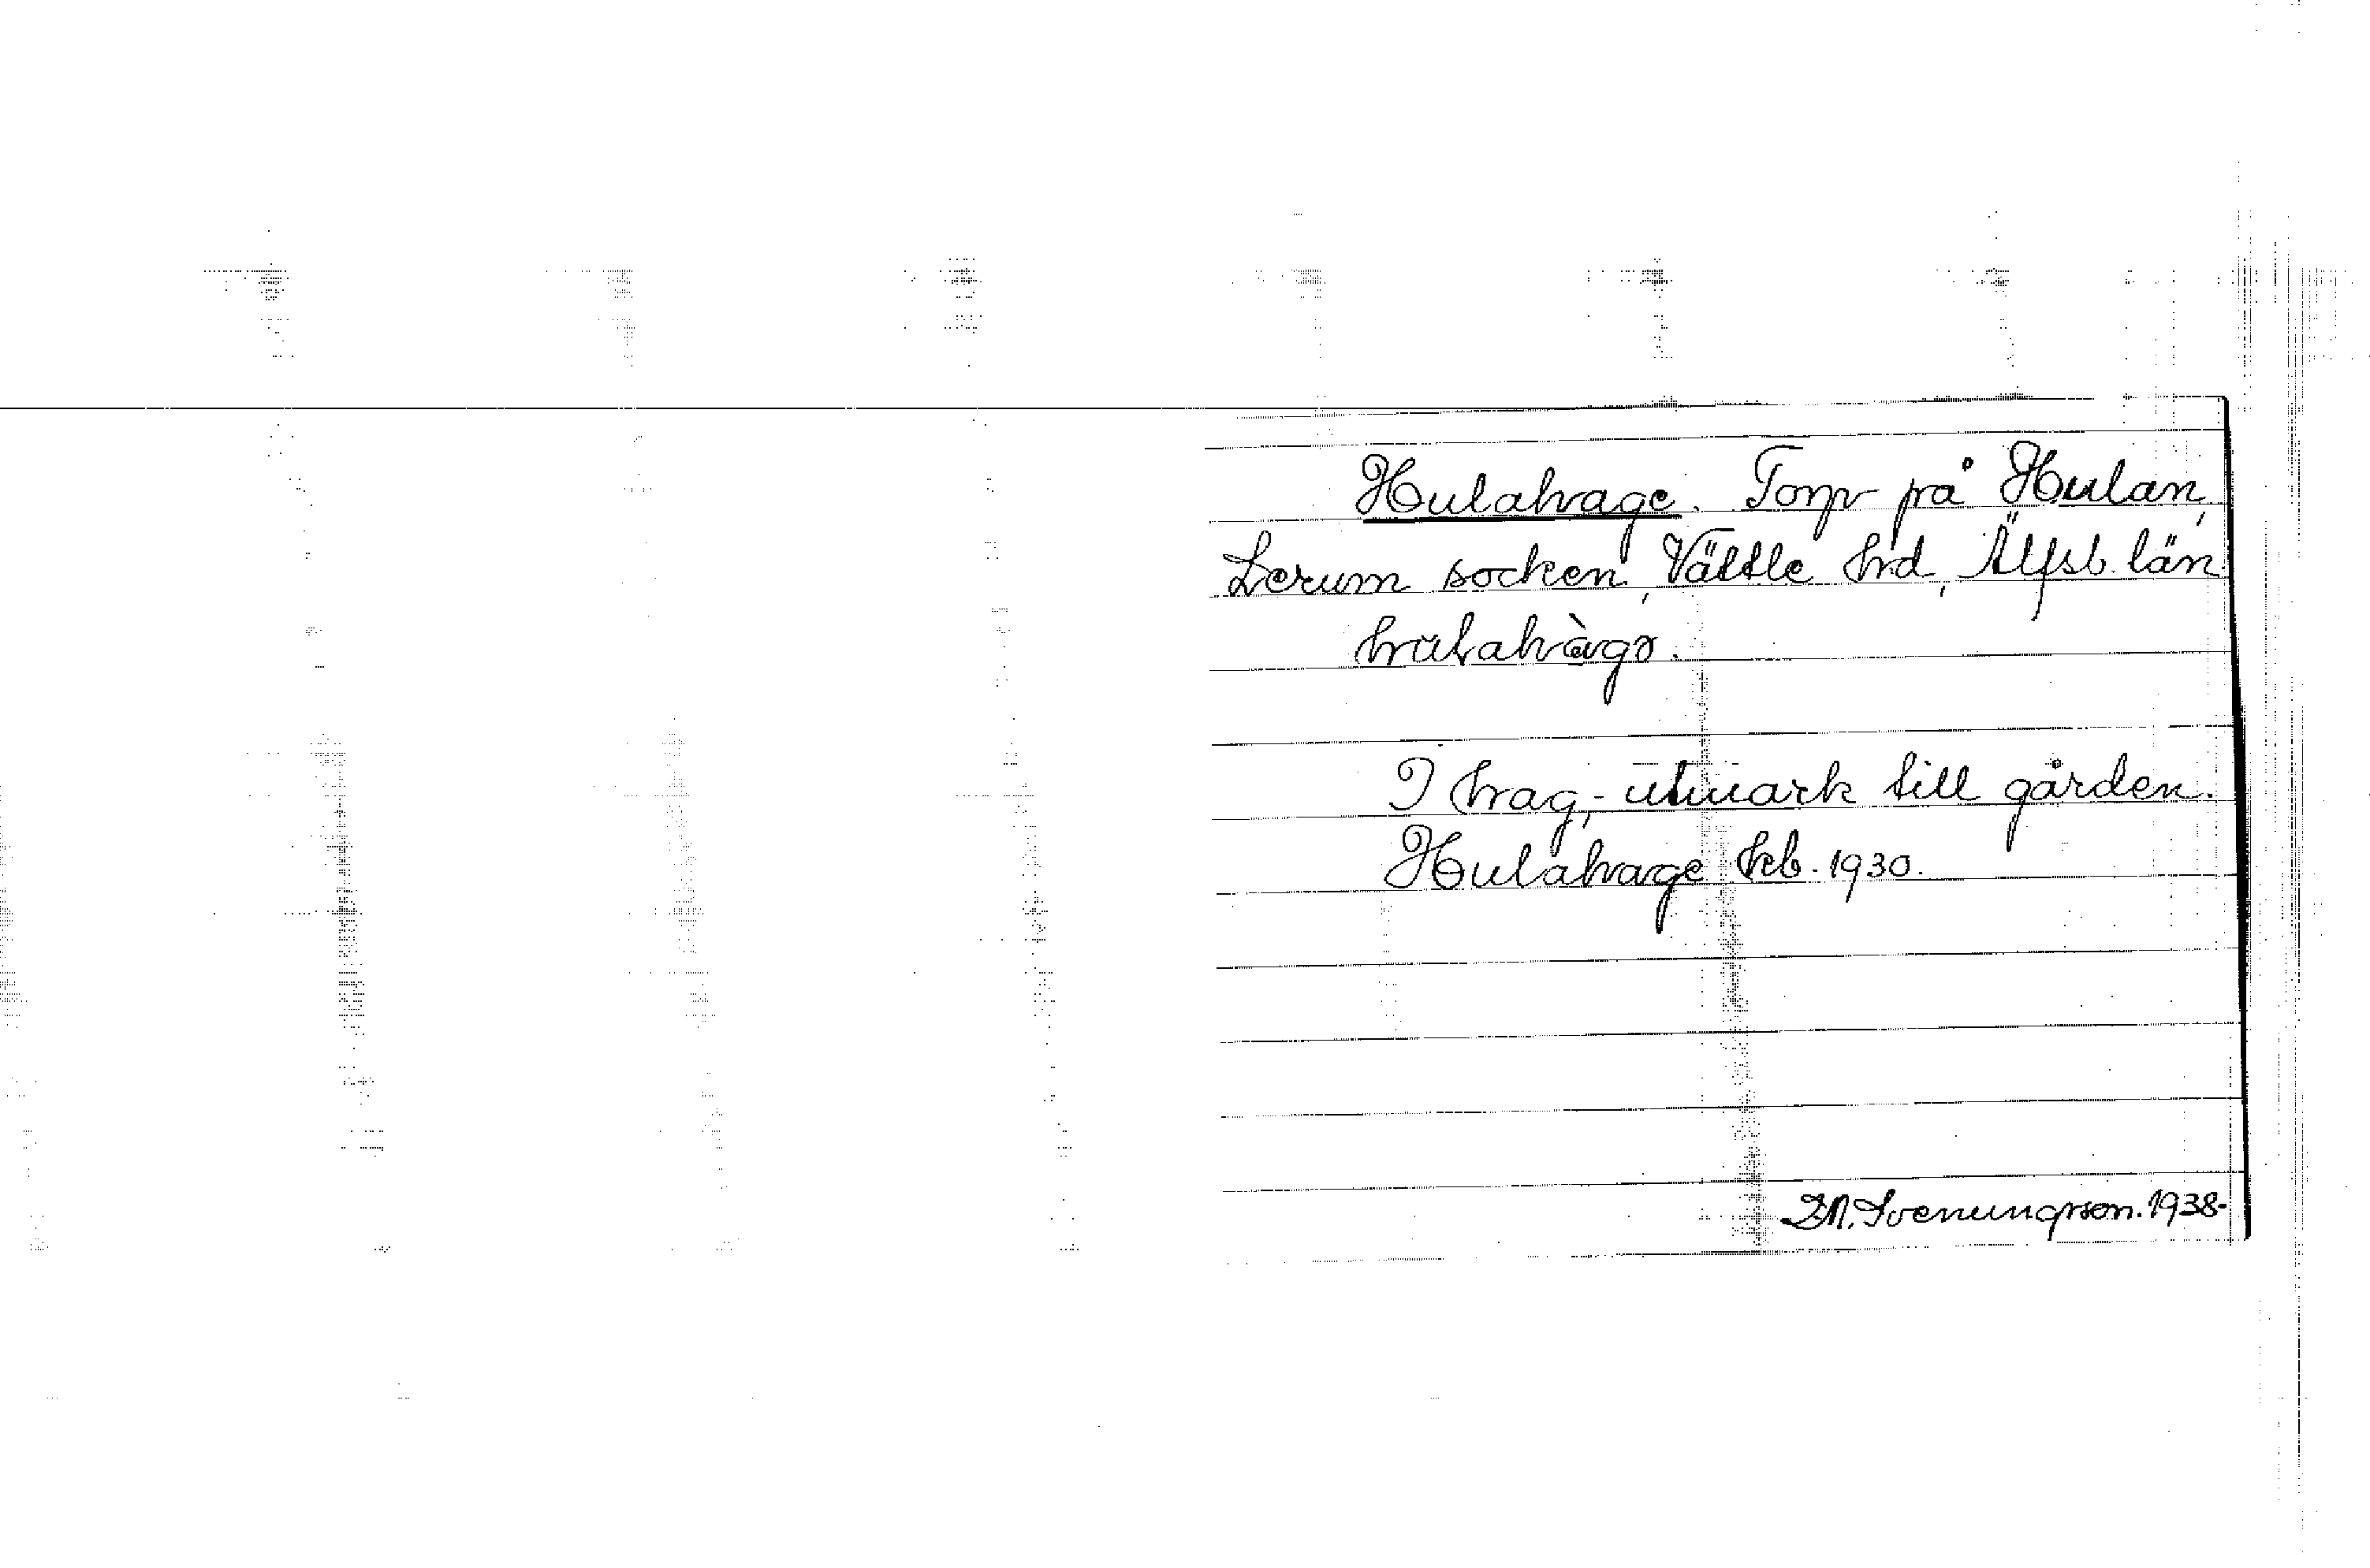 Hulahage. Torp på Hulan,
Lerum socken, Vättle hrd, Älfsb. län.
I hag, utmark till gården.
Hulahage Feb. 1930.
D.N. Svenungsson. 1938-